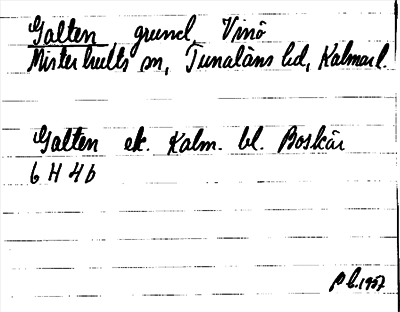 Galten grund Vinö
Misterhults sn, Tunaläns hd, Kalmar l.
Galten ek. Kalm. bl. Boskär
6 H 4 b
1957